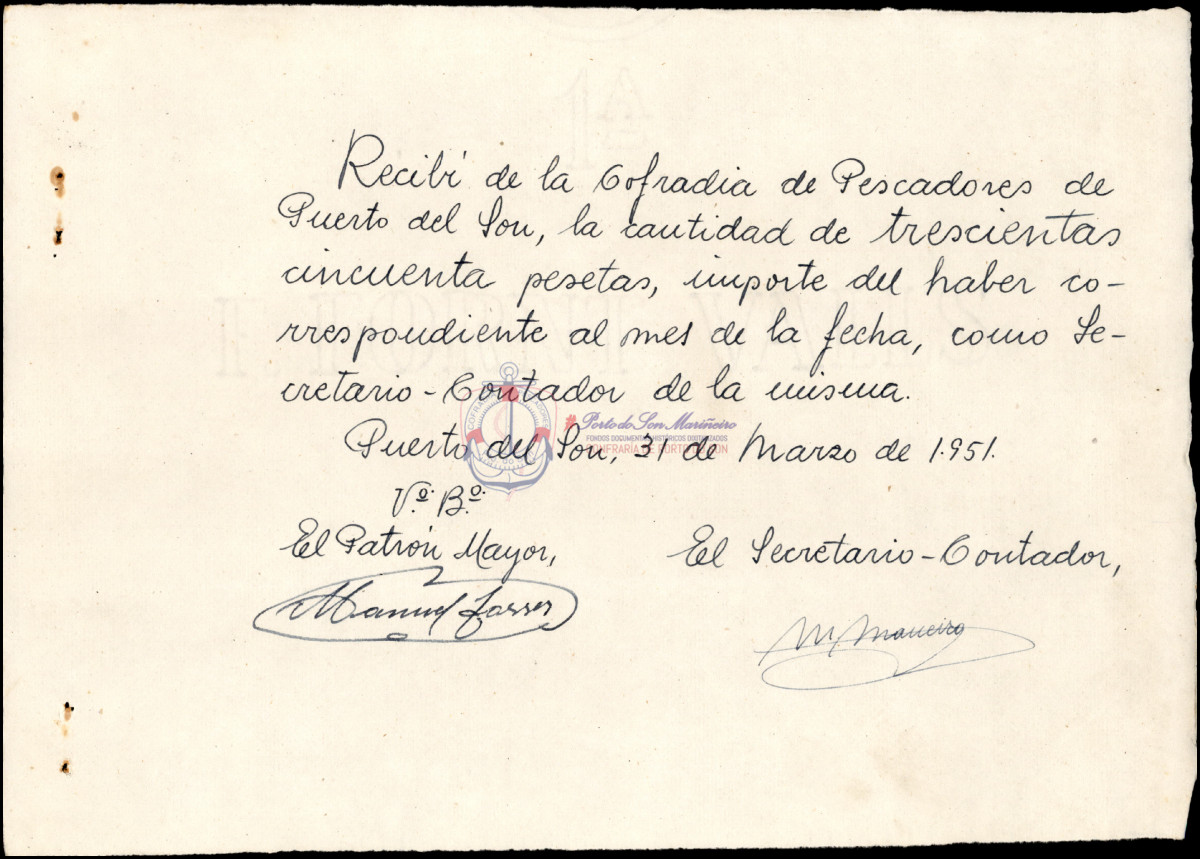 Recibí de la Cofradia de Pescadores de
Puerto del Son, la cantidad de trescientas
cincuenta pesetas, importe del haber co-
rrespondiente al mes de la fecha, como Se-
cretario-Contador de la misma.
Porto do Son Mariñeiro
FONDOS DOCUMENTAIS HISTÓRICOS DIXITALIZADOS
CONFRARÍA DE PORTO DO SON
Puerto del Son, 31 de Marzo de 1.951.
Vº. Bº.
El Patrón Mayor,
El Secretario-Contador,
Manuel
M. Maneiro